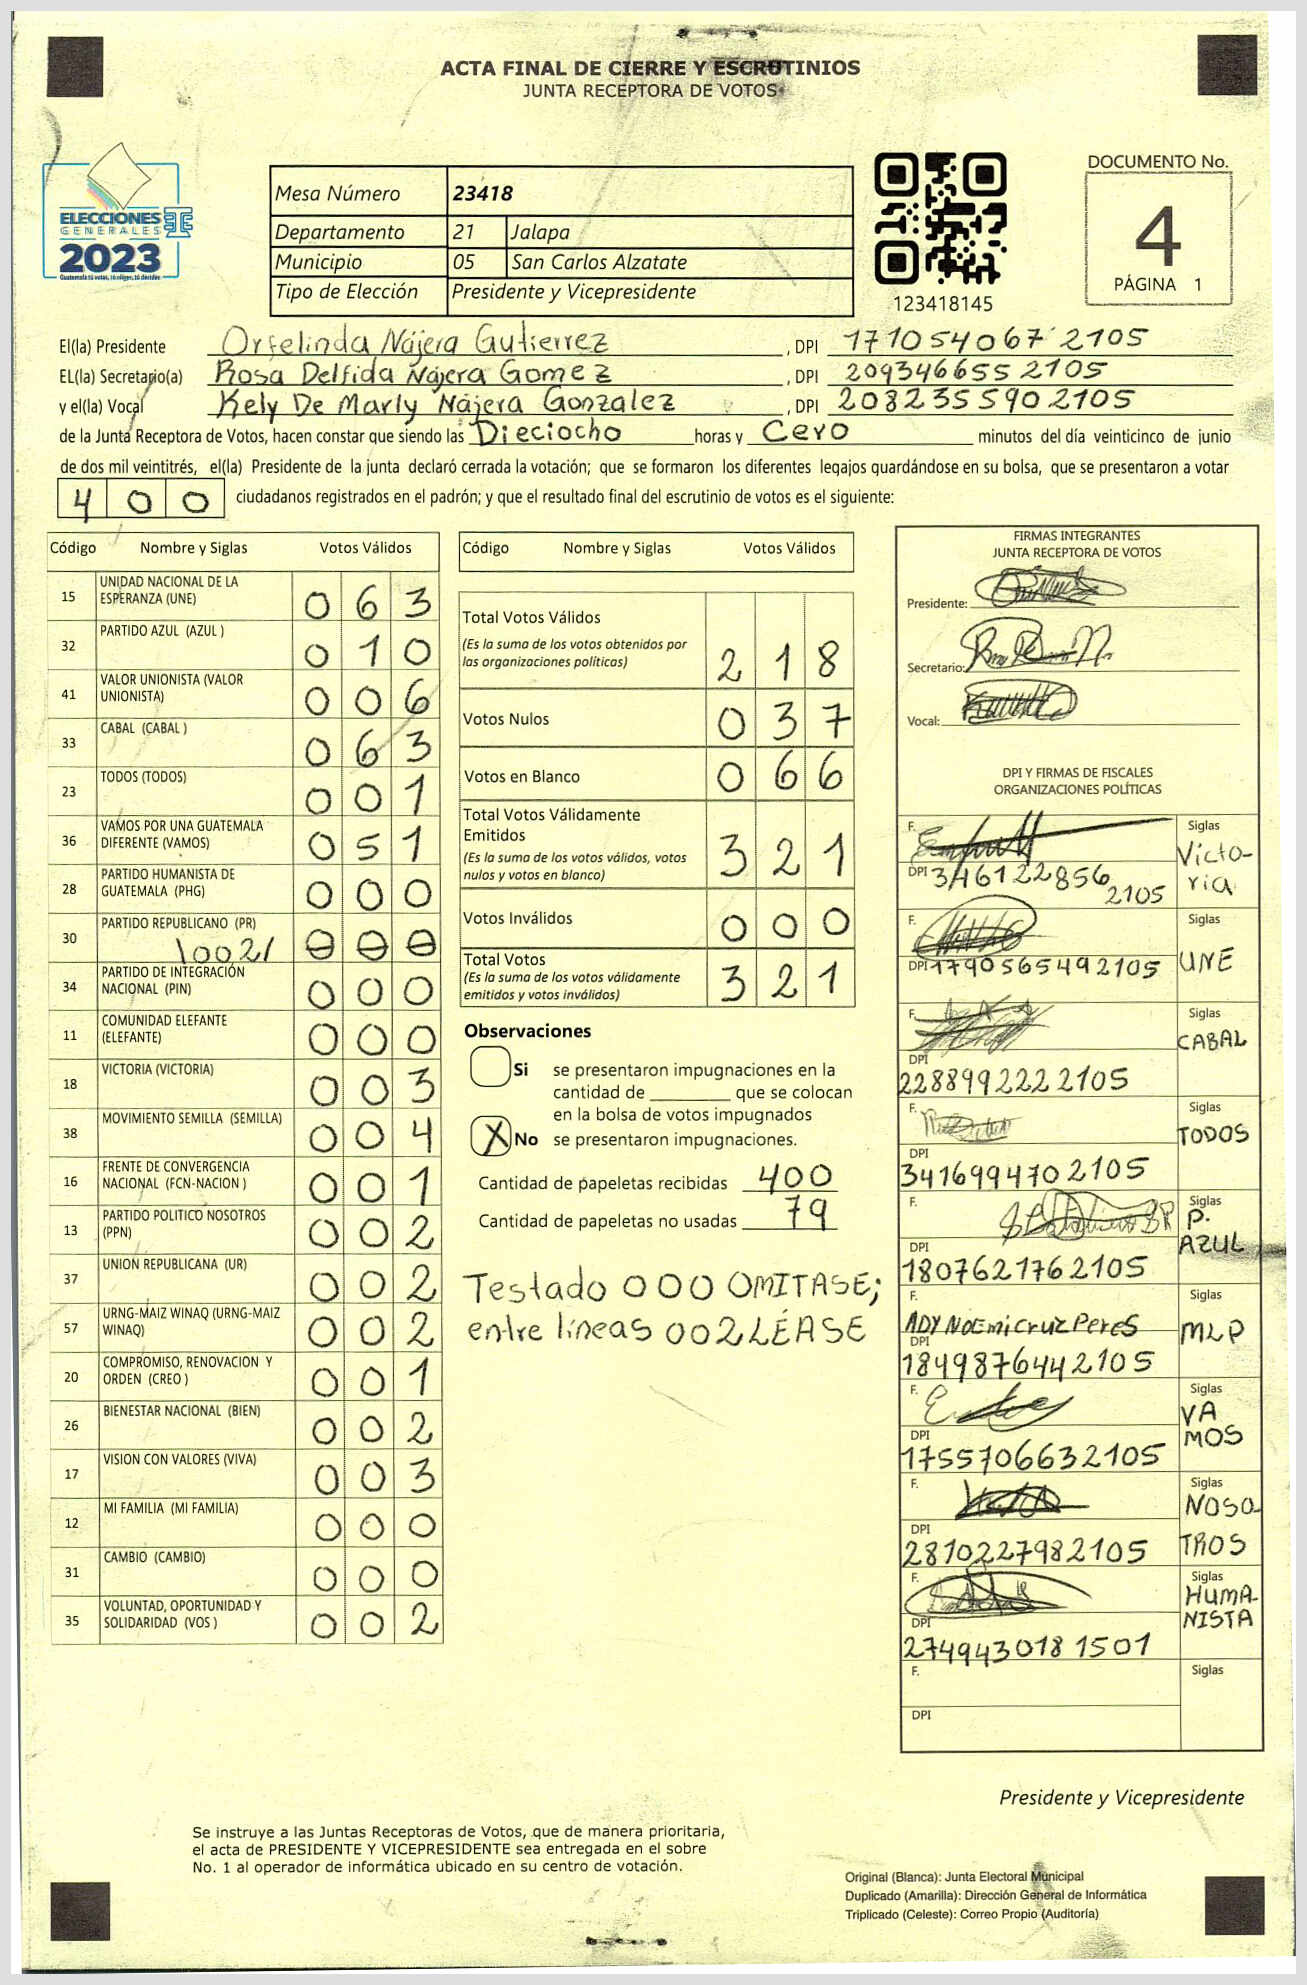 ACTA FINAL DE CIERRE Y ESCRUTINIOS
JUNTA RECEPTORA DE VOTOS
ELECCIONES
GENERALES
2023
Guatemala tú votas, tú eliges, tú decides
Mesa Número 23418
Departamento 21 Jalapa
Municipio 05 San Carlos Alzatate
Tipo de Elección Presidente y Vicepresidente
123418145
DOCUMENTO No.
4
PÁGINA 1
El(la) Presidente Orfelinda Nájera Gutierrez , DPI 171054067 2105
EL(la) Secretario(a) Rosa Delfida Nájera Gomez , DPI 209346655 2105
y el(la) Vocal Kely De Marly Nájera Gonzalez , DPI 208235590 2105
de la Junta Receptora de Votos, hacen constar que siendo las Dieciocho horas y Cero minutos del día veinticinco de junio
de dos mil veintitrés, el(la) Presidente de la junta declaró cerrada la votación; que se formaron los diferentes legajos guardándose en su bolsa, que se presentaron a votar
400 ciudadanos registrados en el padrón; y que el resultado final del escrutinio de votos es el siguiente:
Código Nombre y Siglas Votos Válidos
15 UNIDAD NACIONAL DE LA
ESPERANZA (UNE) 063
32 PARTIDO AZUL (AZUL ) 010
41 VALOR UNIONISTA (VALOR
UNIONISTA) 006
33 CABAL (CABAL ) 063
23 TODOS (TODOS) 001
36 VAMOS POR UNA GUATEMALA
DIFERENTE (VAMOS) 051
28 PARTIDO HUMANISTA DE
GUATEMALA (PHG) 000
30 PARTIDO REPUBLICANO (PR)
\002/ 000
34 PARTIDO DE INTEGRACIÓN
NACIONAL (PIN) 000
11 COMUNIDAD ELEFANTE
(ELEFANTE) 000
18 VICTORIA (VICTORIA) 003
38 MOVIMIENTO SEMILLA (SEMILLA) 004
16 FRENTE DE CONVERGENCIA
NACIONAL (FCN-NACION ) 001
13 PARTIDO POLITICO NOSOTROS
(PPN) 002
37 UNION REPUBLICANA (UR) 002
57 URNG-MAIZ WINAQ (URNG-MAIZ
WINAQ) 002
20 COMPROMISO, RENOVACION Y
ORDEN (CREO ) 001
26 BIENESTAR NACIONAL (BIEN) 002
17 VISION CON VALORES (VIVA) 003
12 MI FAMILIA (MI FAMILIA) 000
31 CAMBIO (CAMBIO) 000
35 VOLUNTAD, OPORTUNIDAD Y
SOLIDARIDAD (VOS ) 002
Código Nombre y Siglas Votos Válidos
Total Votos Válidos
(Es la suma de los votos obtenidos por
las organizaciones políticas) 218
Votos Nulos 037
Votos en Blanco 066
Total Votos Válidamente
Emitidos
(Es la suma de los votos válidos, votos
nulos y votos en blanco) 321
Votos Inválidos 000
Total Votos
(Es la suma de los votos válidamente
emitidos y votos inválidos) 321
Observaciones
Si se presentaron impugnaciones en la
cantidad de ________ que se colocan
en la bolsa de votos impugnados
X No se presentaron impugnaciones.
Cantidad de papeletas recibidas 400
Cantidad de papeletas no usadas 79
Testado 000 OMITASE;
entre líneas 002 LÉASE
FIRMAS INTEGRANTES
JUNTA RECEPTORA DE VOTOS
Presidente:
Secretario:
Vocal:
DPI Y FIRMAS DE FISCALES
ORGANIZACIONES POLÍTICAS
F. Siglas
Victo-
ria
DPI 346122856
2105
F. Siglas
UNE
DPI 1790565492105
F. Siglas
CABAL
DPI
228899222 2105
F. Siglas
TODOS
DPI
3416994702105
F. Siglas
P.
AZUL
DPI
1807621762105
F. Siglas
ADY NOEmi Cruz Peres MLP
DPI
1849876442105
F. Siglas
VA
MOS
DPI
1755706632105
F. Siglas
NOSO
TROS
DPI
2810227982105
F. Siglas
HUMA-
NISTA
DPI
274943018 1501
F. Siglas
DPI
Presidente y Vicepresidente
Se instruye a las Juntas Receptoras de Votos, que de manera prioritaria,
el acta de PRESIDENTE Y VICEPRESIDENTE sea entregada en el sobre
No. 1 al operador de informática ubicado en su centro de votación.
Original (Blanca): Junta Electoral Municipal
Duplicado (Amarilla): Dirección General de Informática
Triplicado (Celeste): Correo Propio (Auditoría)